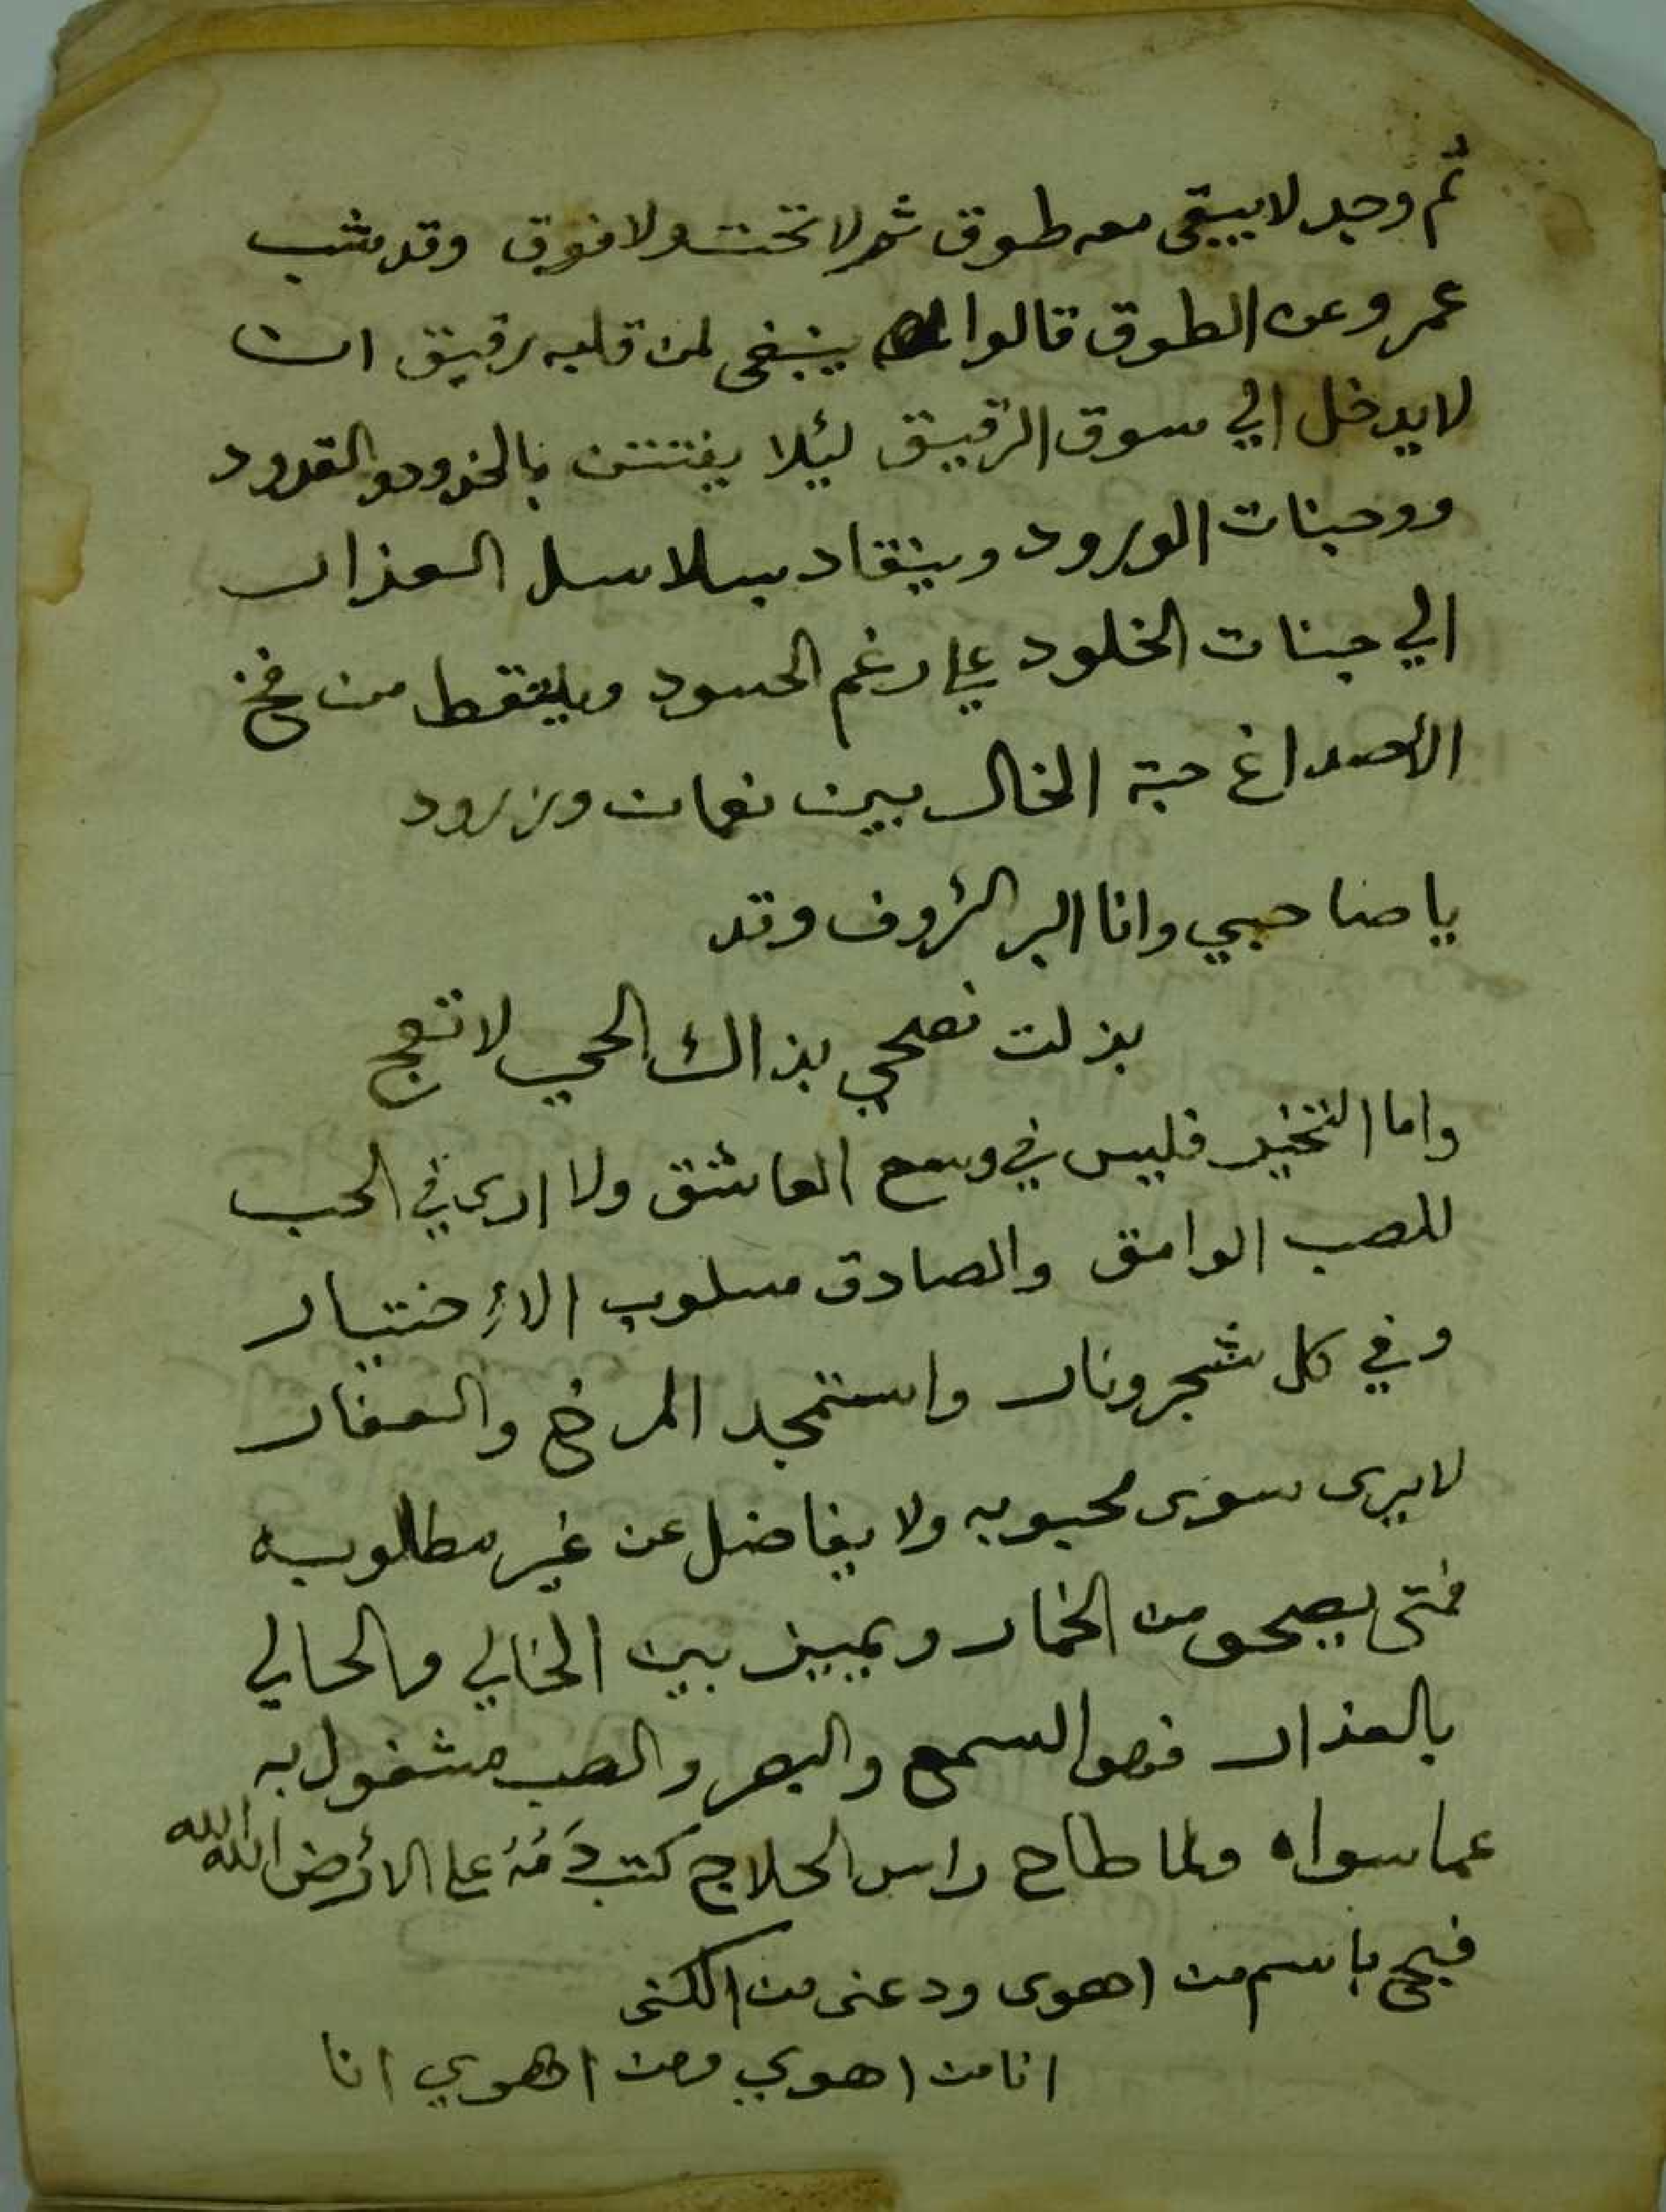 ثم وجد لا يبقى معه طوق ثم لا تحت ولا فوق وقد شب
عمرو عن الطوق قالوا ينبغي لمن قلبه رقيق ان
لا يدخل الي سوق الرقيق ليئلا يفتتن بالخدود والقدود
ووجنات الورود وينقاد بسلاسل العذار
الي جنات الخلود علي رغم الحسود ويلتقط من فخ
الأصداغ حبة الخال بين نعمان وزرود
يا صاحبي وانا البر الرؤف وقد
بذلت نصحي بذاك الحي لا تعج
واما التخيير فليس في وسع العاشق ولا ارى في الحب
للصب الوامق والصادق مسلوب الإختيار
وفي كل شجر ونار واستمجد المرخ والعفار
لا يرى سوى محبوبه ولا يفاضل عن غير مطلوبه
فمتى يصحو من الخمار ويميز بين الخالي والحالي
بالعذار فهو السمع والبصر والصب مشغول به
عما سواه ولما طاح راس الحلاج كتب دَمُهُ علي الأرض الله الله
فبح باسم من اهوى ودعنى من الكنى
انا من اهوي ومن اهوي انا